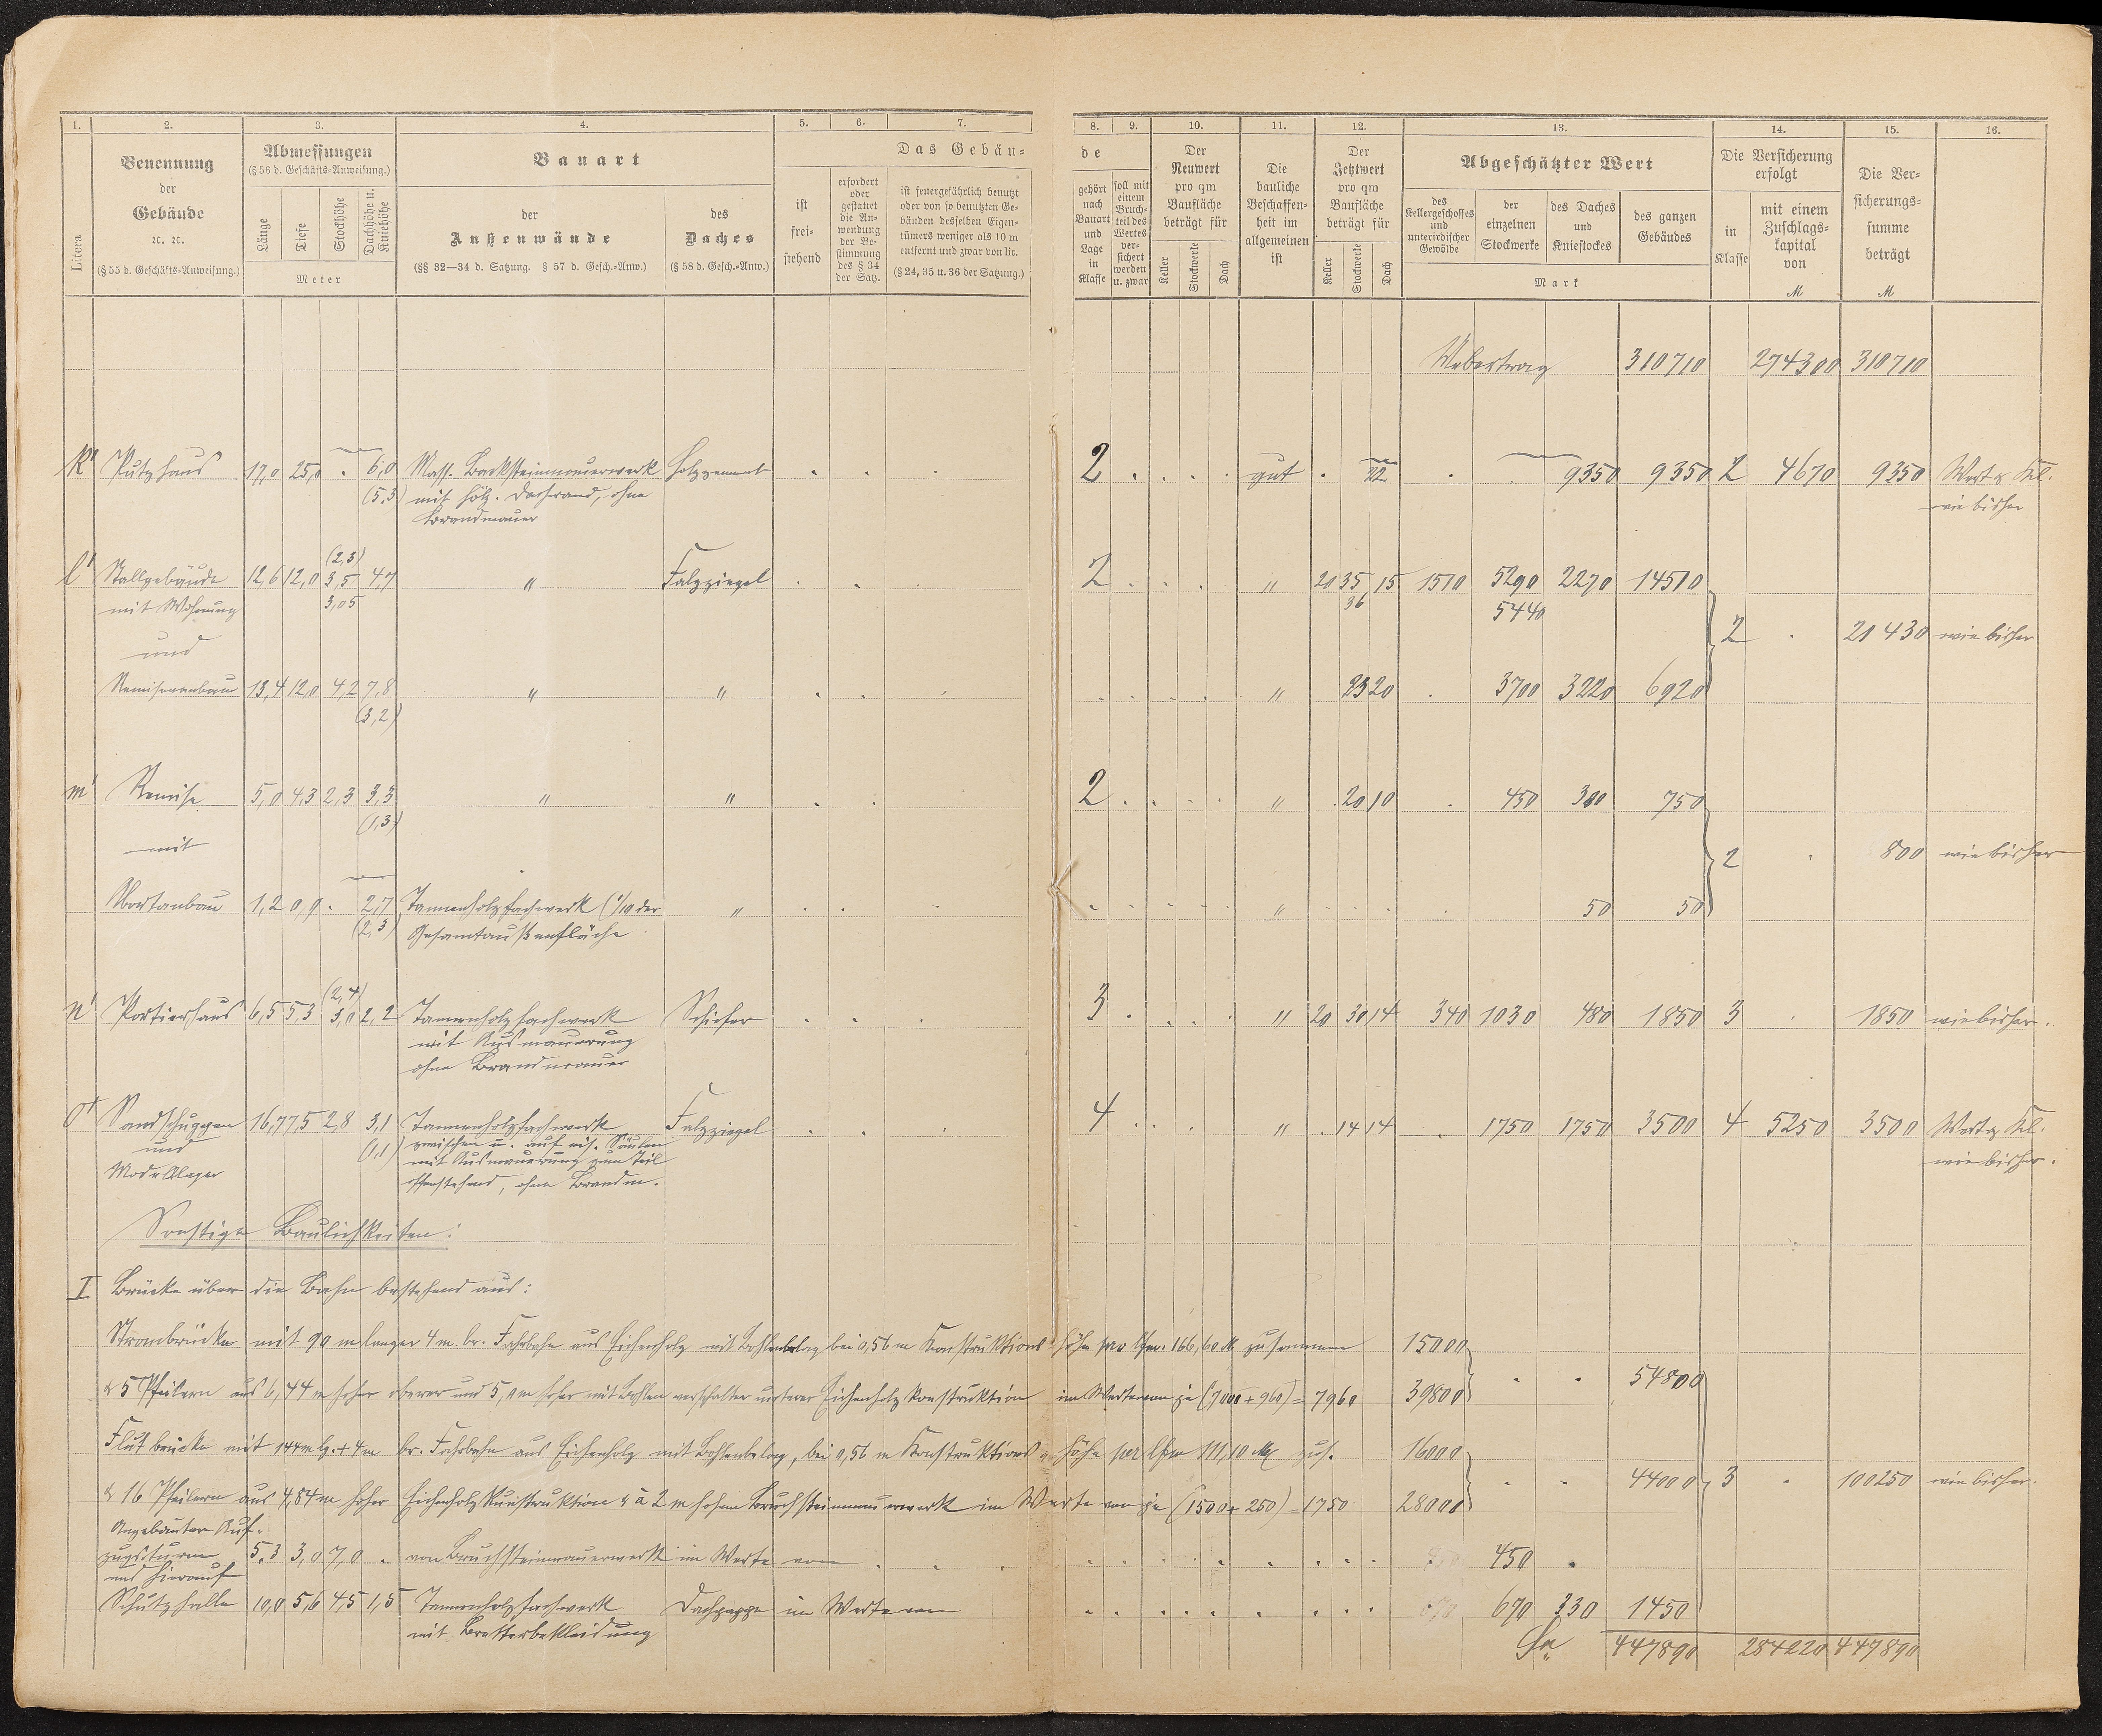 1. 2. 3. 4. 5. 6. 7. 8. 9. 10. 11. 12. 13. 14. 15. 16.
Litera
Benennung
der
Gebäude
ꝛc. ꝛc.
(§ 55 d. Geschäfts-Anweisung.)
Abmessungen
(§ 56 d. Geschäfts-Anweisung.)
Länge
Tiefe
Stockhöhe
Dachhöhe u. Kniehöhe
Meter
Bauart
der
Außenwände
(§§ 32—34 d. Satzung. § 57 d. Gesch.-Anw.)
des
Daches
(§ 58 d. Gesch.-Anw.)
Das Gebäu-
ist
frei-
stehend
erfordert
oder
gestattet
die An-
wendung
der Be-
stimmung
des § 34
der Satz.
ist feuergefährlich benutzt
oder von so benutzten Ge-
bäuden desselben Eigen-
tümers weniger als 10 m
entfernt und zwar von lit.
(§ 24, 35 u. 36 der Satzung.)
de
gehört
nach
Bauart
und
Lage
in
Klasse
soll mit
einem
Bruch-
teil des
Wertes
ver-
sichert
werden
u. zwar
Der
Neuwert
pro qm
Baufläche
beträgt für
Keller
Stockwerke
Dach
Die
bauliche
Beschaffen-
heit im
allgemeinen
ist
Der
Jetztwert
pro qm
Baufläche
beträgt für
Keller
Stockwerke
Dach
Abgeschätzter Wert
des
Kellergeschosses
und
unterirdischer
Gewölbe
der
einzelnen
Stockwerke
des Daches
und
Kniestockes
des ganzen
Gebäudes
Mark
Die Versicherung
erfolgt
in
Klasse
mit einem
Zuschlags-
kapital
von
M
Die Ver-
sicherungs-
summe
beträgt
M
Uebertrag 310710 274300 310710
k' Putzhaus 17,0 25,0 . 6,0 Mass. Backsteinmauerwerk Holzzement . . . 2 . . . . gut . 22 . . 9350 9350 2 4670 9350 Wert & Kl.
(5,3) mit hölz. Dachrand, ohne wie bisher
Brandmauer
(2,3)
l' Stallgebäude 12,6 12,0 3,5 4,7 " Falzziegel . . . 2 . . . . " 20 35 15 1510 5290 2270 14510
mit Wohnung 3,05 36 5440
und 2 . 21430 wie bisher
Remisenanbau 13,4 12,0 4,2 7,8 " " . . . " 23 20 . 3700 3220 6920
(3,2)
m' Remise 5,0 4,3 2,3 3,3 " " . . 2 . . . . " . 20 10 . 450 300 750
(1,3)
mit 2 . 800 wie bisher
Abortanbau 1,2 0,9 . 2,7 Tannenholzfachwerk (1/10 der " . . . " . . . 50 50
(2,3) Gesamtaußenfläche
(2,4)
n' Portierhaus 6,5 5,3 3,0 2,2 Tannenholzfachwerk Schiefer . . . 3 . . . . " 20 30 14 340 1030 480 1850 3 . 1850 wie bisher.
mit Ausmauerung
ohne Brandmauer
o' Sandschuppen 16,7 7,5 2,8 3,1 Tannenholzfachwerk Falzziegel . . . 4 . . . " . 14 14 . 1750 1750 3500 4 5250 3500 Wert & Kl.
und (1,1) zwischen u. auf eis. Säulen wie bisher.
mit Ausmauerung zum Teil
Modellager offenstehend, ohne Brandm.
Sonstige Baulichkeiten:
I Brücke über die Bahn bestehend aus:
Strombrücke mit 90 m langer 4 m. br. Fahrbahn aus Eichenholz mit Bohlenbelag bei 0,56 m Konstruktions-höhe pro lfm. 166,60 M zusammen 15000
& 5 Pfeilern aus 6,44 m hoher oberer und 5,1 m hoher mit Bohlen verschalter unterer Eichenholzkonstruktion im Werte von je (7000 + 960) = 7960 39800 . . 54800
Flutbrücke mit 144 m lg. + 4 m br. Fahrbahn aus Eichenholz mit Bohlenbelag, bei 0,56 m Konstruktions-höhe per lfm 111,10 M zus. 16000
& 16 Pfeilern aus 4,84 m hoher Eichenholzkonstruktion & à 2 m hohem Bruchsteinmauerwerk im Werte von je (1500 + 250) = 1750 28000 . . 44000 3 . 100250 wie bisher.
Angebauter Auf-
zugsturm 5,3 3,0 7,0 . von Bruchsteinmauerwerk im Werte von 450 .
und hierauf
Schutzhalle 10,0 5,6 4,5 1,5 Tannenholzfachwerk Dachpappe im Werte von 670 330 1450
mit Bretterbekleidung
Sa. 447890 284220 447890